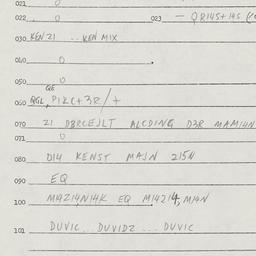 021 0
022 0 023 — QR145+145
030 KEN 21 .. KEN MIX
040 0
050 0
QE
060 QGL, P1KC+3R/+
070 21 DBRCEJLT ALCDING D3R MAM14N
071 0
080 D14 KENST MAJN 215N
090 EQ
100 M1421,N14K EQ M14214, M14N
101 DUVIC .. DUVIDZ ... DUVIC